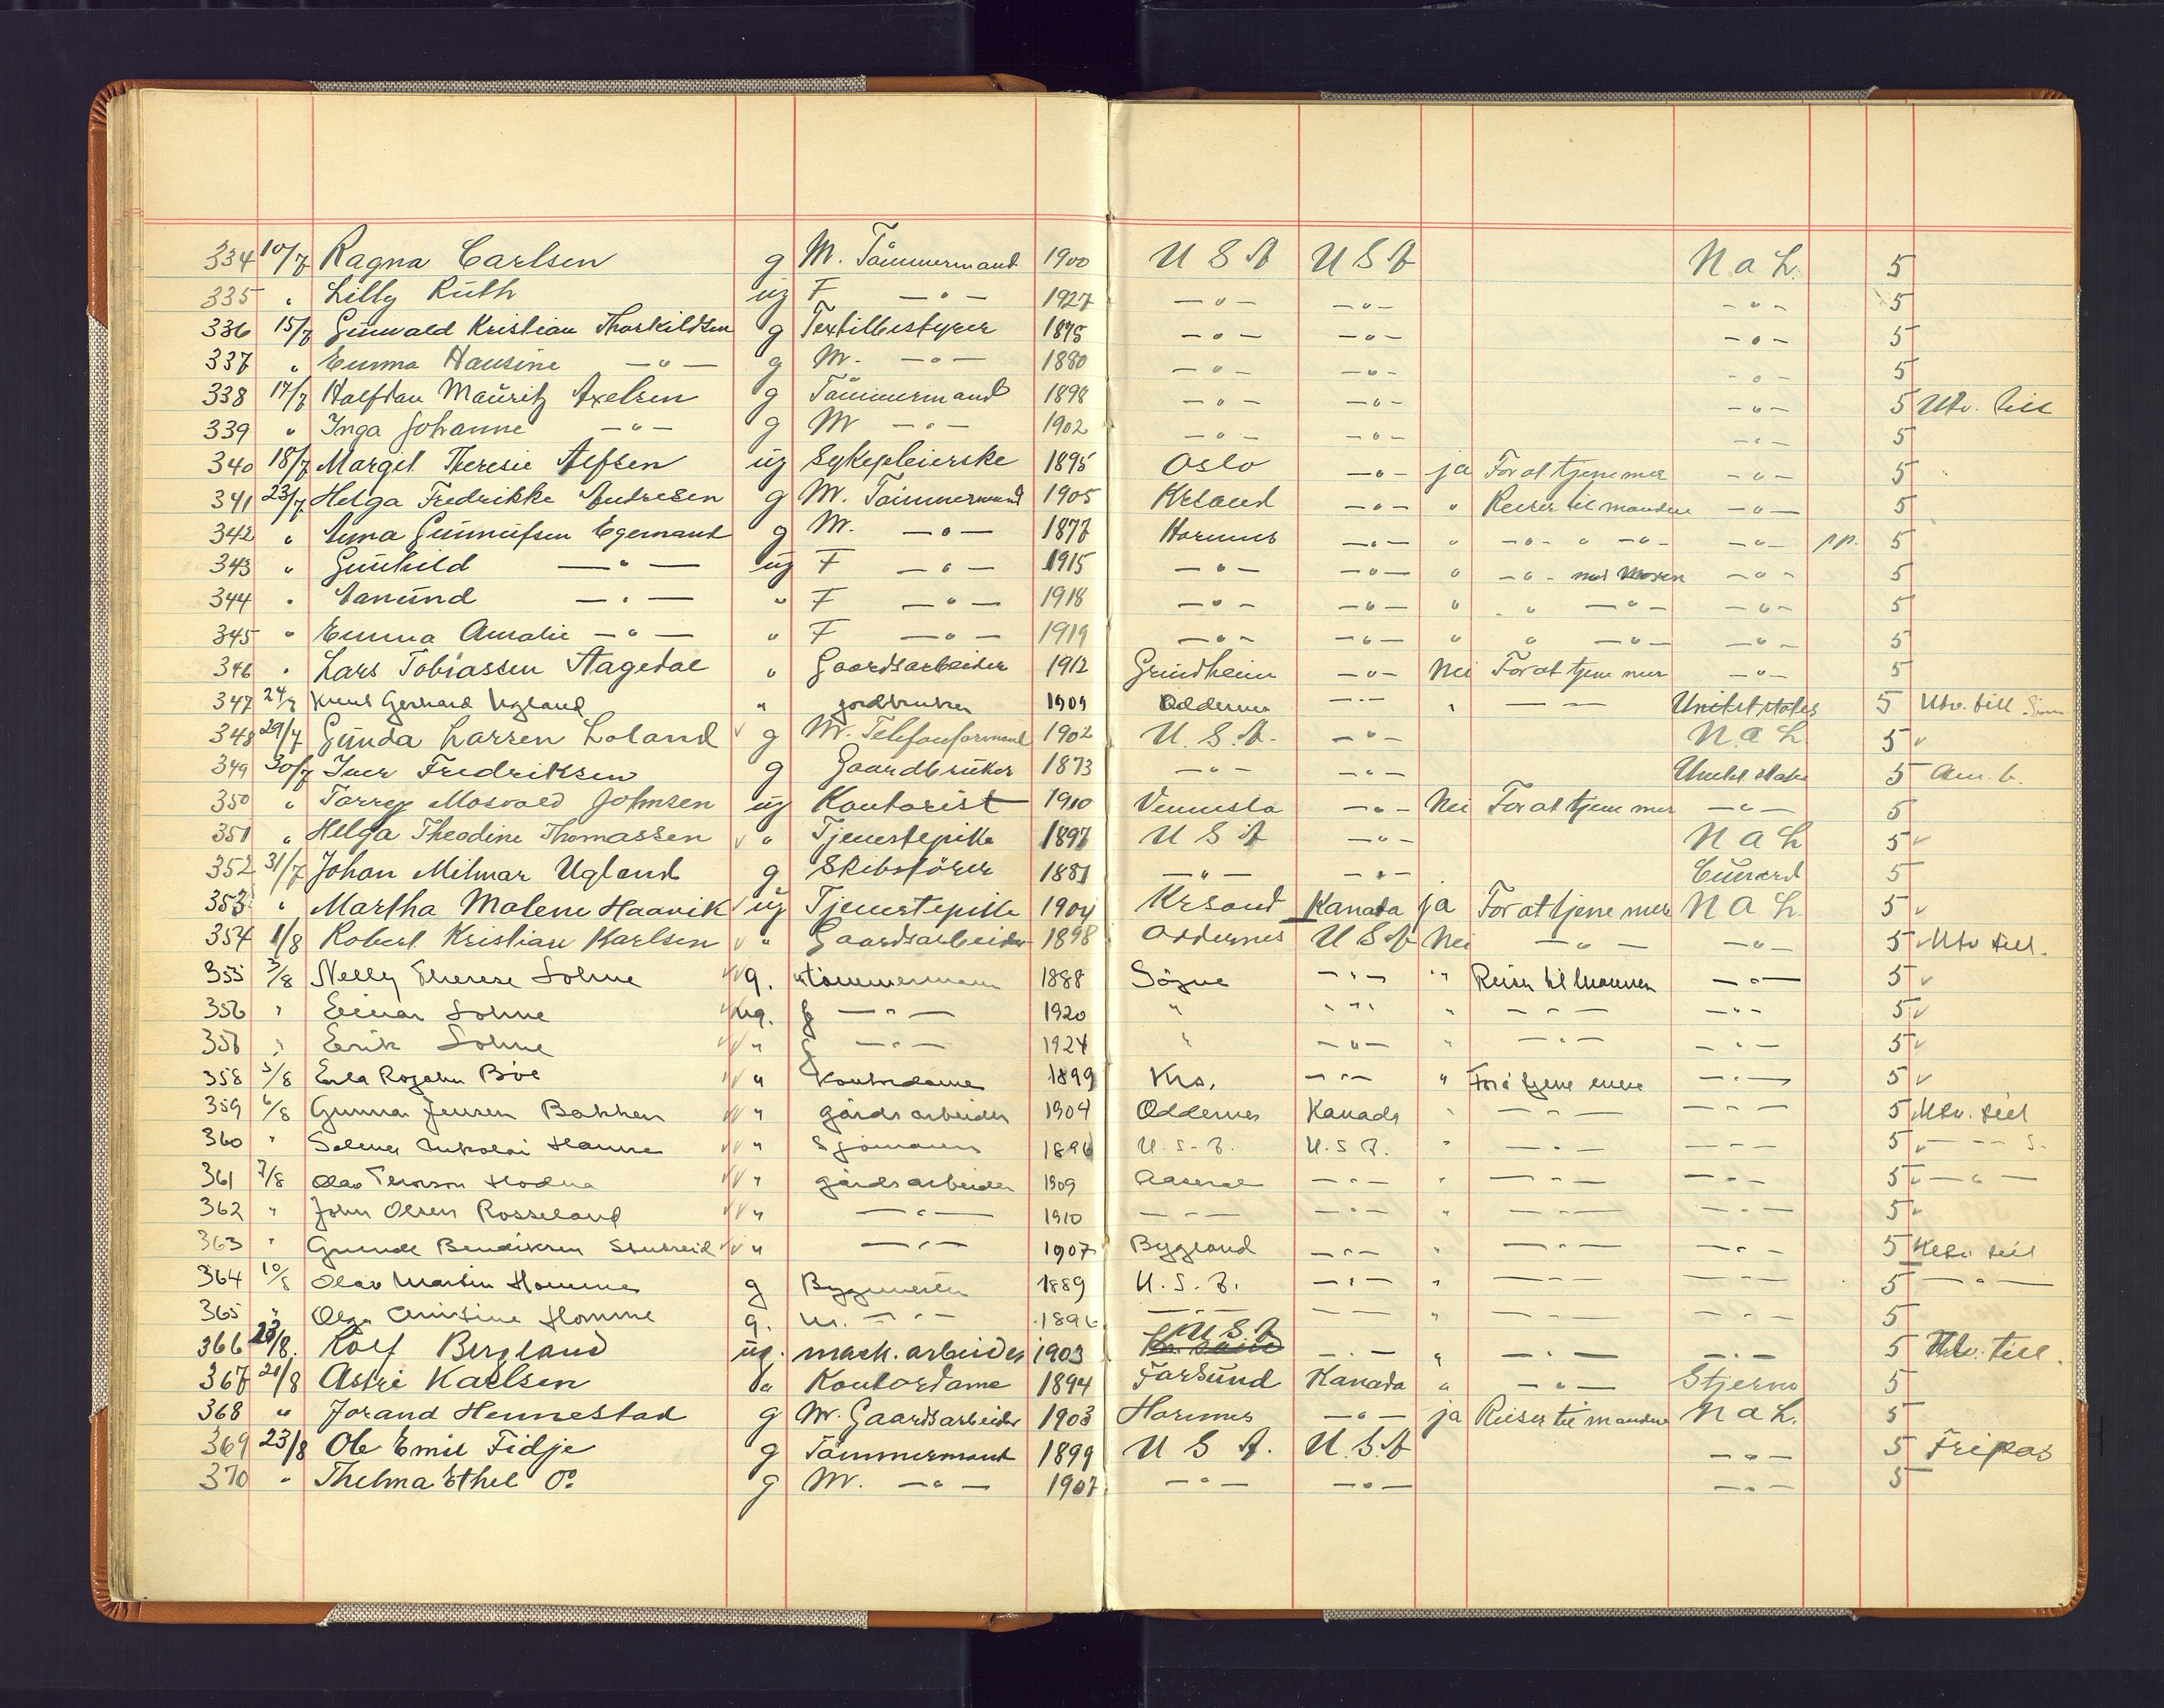 334 10/7 Ragna Carlsen g M. Tömmermand 1900 U S A U S A N a L. 5
335 " Lilly Ruth ug F —"— 1927 —"— —"— —"— 5
336 15/7 Gunvald Kristian Thorkildsen g Textilbestyrer 1875 —"— —"— —"— 5
337 " Emma Hansine —"— g M. —"— 1880 —"— —"— —"— 5
338 17/7 Halfdan Mauritz Axelsen g Tömmermand 1898 —"— —"— —"— 5 Utv. till
339 " Inga Johanne —"— g M —"— 1902 —"— —"— —"— 5
340 18/7 Margit Theresie Alfsen ug Sykepleierske 1895 Oslo —"— ja For at tjene mer —"— 5
341 23/7 Helga Fredrikke Andresen g M. Tömmermand 1905 —"— " Reiser til manden —"— 5
342 " Anna Gunnufsen Egemand g M. —"— 1877 Hornnes —"— " —"— " —"— —"— pp. 5
343 " Gunhild —"— ug F —"— 1915 —"— —"— " —"— med Moren —"— 5
344 " —"— " F —"— 1918 —"— —"— " " —"— —"— 5
345 " Emma Amalie —"— " F —"— 1919 —"— —"— " " —"— —"— 5
346 " Lars Tobiassen Aagedal " Gaardsarbeider 1912 Grindheim —"— Nei For at tjene mer —"— 5
347 24/7 Knut Gerhard Ugland " jordbruker 1909 Oddernes —"— " — — United states 5 Utv. till
348 29/7 Gunda Larsen Loland g M. Telefonformand 1902 U. S. A. —"— N a L 5
349 30/7 Iver Fredriksen g Gaardbruker 1873 —"— —"— United States 5 Am. b.
350 " Tarrej Mosvold Johnsen ug Kontorist 1910 Vennesla —"— Nei For at tjene mer —"— 5
351 " Helga Theodine Thomassen " Tjenestepike 1897 U S A —"— N a L 5
352 31/7 Johan Milmar Ugland g Skibsförer 1881 —"— —"— Cunard 5
353 " Martha Malene Haavik ug Tjenestepike 1904 Krsand Kanada ja For at tjene mer N a L. 5
354 1/8 Robert Kristian Karlsen " Gaardsarbeider 1898 Oddernes U S A Nei —"— —"— 5 Utv till.
355 3/8 Nelly Therese Lohne g. tömmermann 1888 Sögne —"— " Reiser til Mannen —"— 5
356 " Einar Lohne ug. —"— 1920 " —"— " —"— —"— 5
357 " Erik Lohne " —"— 1924 " —"— " —"— —"— 5
358 5/8 Erla Rojahn Böe " Kontordame 1899 Krs. —"— " For å tjene mere —"— 5
359 6/8 Gunnar Jensen Bakken " gårdsarbeider 1904 Oddernes Kanada " —"— —"— 5 Utv. till
360 " Nikolai Hanne " Sjömann 1896 U. S. A. U. S. A. " —"— —"— 5 — — S.
361 7/8 Olav " gårdsarbeider 1909 Aaseral —"— " —"— —"— 5 —"—
362 " John Olsen Rosseland " —"— 1910 —"— —"— " —"— —"— 5
363 " Bendiksen " —"— 1907 Bygland —"— " —"— —"— 5 Utv. till
364 10/8 Olav Martin Homme g Byggmester 1889 U. S. A. —"— " —"— —"— 5 —"—
365 " Olga Christine Homme g. M. —"— 1896 —"— —"— " —"— —"— 5
366 23/8. Rolf Bergland ug. mask. arbeider 1903 U S A —"— " —"— —"— 5 Utv. till.
367 21/8 Astri Karlsen " Kontordame 1894 Farsund Kanada " —"— Stjerna 5
368 " Jorand Hennestad g M. Gaardsarbeider 1903 Hornnes —"— ja Reiser til manden N a L. 5
369 23/8 Ole Emil Fidje g Tömmermand 1899 U S A. U. S. A —"— 5 Fripas
370 " Thelma Ethel Do g M. —"— 1907 —"— —"— —"— 5